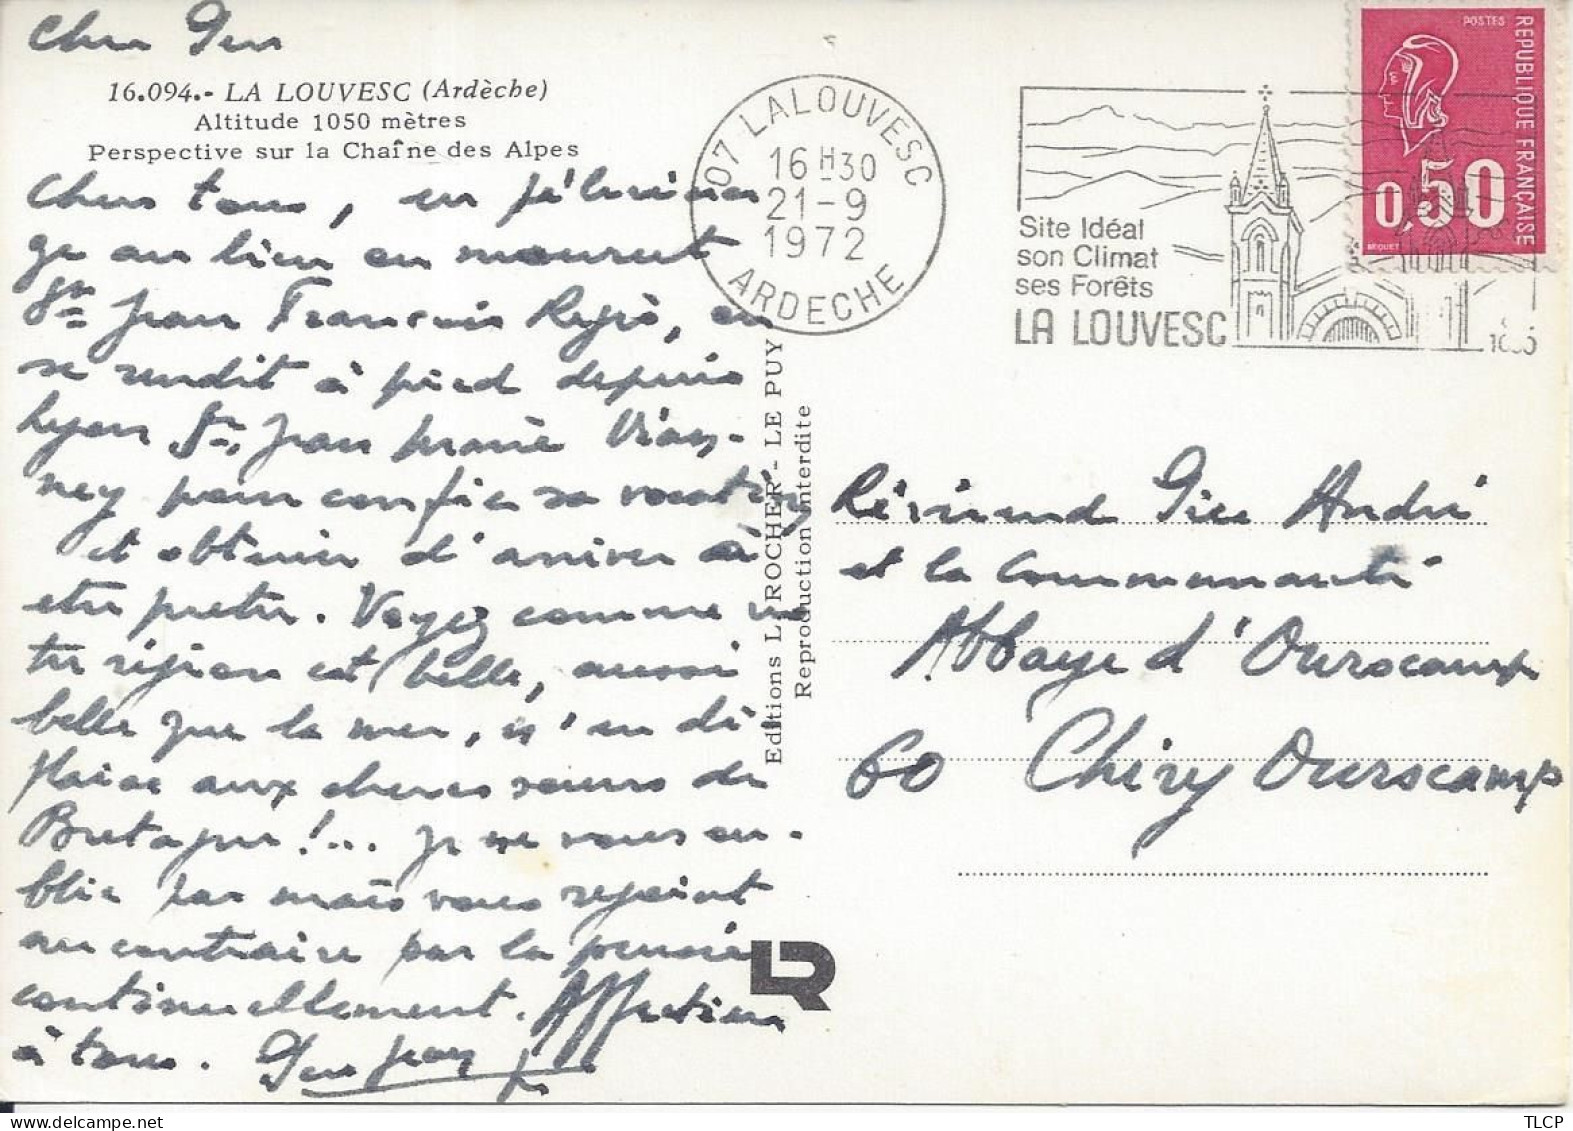 Cher Père
16.094.- LA LOUVESC (Ardèche)
Altitude 1050 mètres
Perspective sur la Chaîne des Alpes
Chers tous, en pélerina
ge au lieu ou mourut
St Jean François Régis, ou
se rendit à pied depuis
Lyon St Jean Marie Vian-
ney pour confier sa vocation
et obtenir d'arriver à
etre pretre. Voyez comme vo
tre région est belle, aussi
belle que la mer, n'en dé-
plaise aux cheres soeurs de
Bretagne !... Je ne vous ou-
blie pas mais vous rejoint
au contraire par la pensée
continuellement. Affection
à tous. Père Jean
07 LALOUVESC
16 H30
21-9
1972
ARDECHE
Site Idéal
son Climat
ses Forêts
LA LOUVESC
POSTES
REPUBLIQUE FRANÇAISE
0,50
BEQUET
Editions L. ROCHER - LE PUY
Reproduction interdite
LR
Révérend Père André
et la Communauté
Abbaye d'Ourscamp
60 Chiry Ourscamp
TLCP